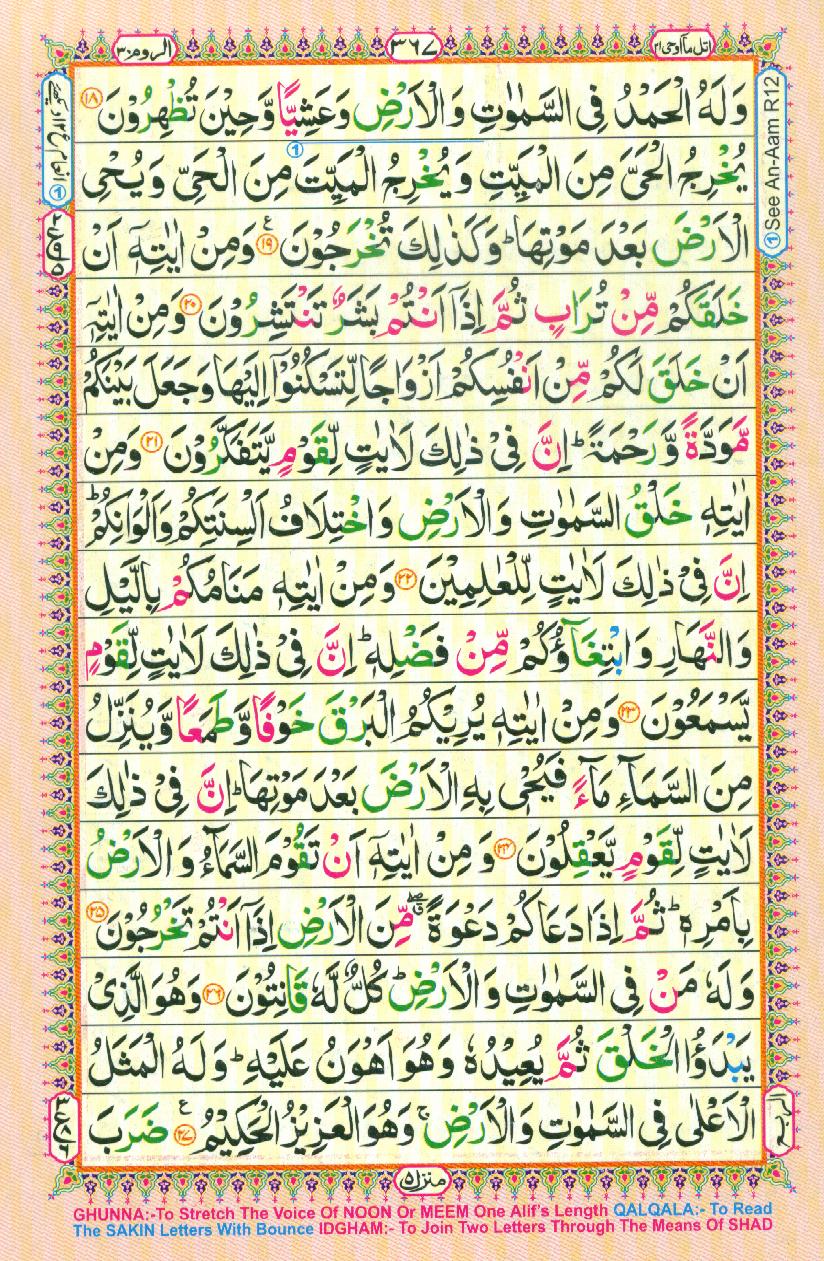 اتل ما اوحی ۲۱
۳۶۷
الروم ۳۰
وَلَهُ الْحَمْدُ فِی السَّمٰوٰتِ وَالْاَرْضِ وَعَشِیًّا وَّحِیْنَ تُظْهِرُوْنَ ۱۸
یُخْرِجُ الْحَیَّ مِنَ الْمَیِّتِ وَیُخْرِجُ الْمَیِّتَ مِنَ الْحَیِّ وَیُحْیِ
الْاَرْضَ بَعْدَ مَوْتِهَا ؕ وَكَذٰلِكَ تُخْرَجُوْنَ ۱۹ وَمِنْ اٰیٰتِهٖۤ اَنْ
خَلَقَكُمْ مِّنْ تُرَابٍ ثُمَّ اِذَاۤ اَنْتُمْ بَشَرٌ تَنْتَشِرُوْنَ ۲۰ وَمِنْ اٰیٰتِهٖۤ
اَنْ خَلَقَ لَكُمْ مِّنْ اَنْفُسِكُمْ اَزْوَاجًا لِّتَسْكُنُوْۤا اِلَیْهَا وَجَعَلَ بَیْنَكُمْ
مَّوَدَّةً وَّرَحْمَةً ؕ اِنَّ فِیْ ذٰلِكَ لَاٰیٰتٍ لِّقَوْمٍ یَّتَفَكَّرُوْنَ ۲۱ وَمِنْ
اٰیٰتِهٖ خَلْقُ السَّمٰوٰتِ وَالْاَرْضِ وَاخْتِلَافُ اَلْسِنَتِكُمْ وَاَلْوَانِكُمْ ؕ
اِنَّ فِیْ ذٰلِكَ لَاٰیٰتٍ لِّلْعٰلِمِیْنَ ۲۲ وَمِنْ اٰیٰتِهٖ مَنَامُكُمْ بِالَّیْلِ
وَالنَّهَارِ وَابْتِغَآؤُكُمْ مِّنْ فَضْلِهٖ ؕ اِنَّ فِیْ ذٰلِكَ لَاٰیٰتٍ لِّقَوْمٍ
یَّسْمَعُوْنَ ۲۳ وَمِنْ اٰیٰتِهٖ یُرِیْكُمُ الْبَرْقَ خَوْفًا وَّطَمَعًا وَّیُنَزِّلُ
مِنَ السَّمَآءِ مَآءً فَیُحْیٖ بِهِ الْاَرْضَ بَعْدَ مَوْتِهَا ؕ اِنَّ فِیْ ذٰلِكَ
لَاٰیٰتٍ لِّقَوْمٍ یَّعْقِلُوْنَ ۲۴ وَمِنْ اٰیٰتِهٖۤ اَنْ تَقُوْمَ السَّمَآءُ وَالْاَرْضُ
بِاَمْرِهٖ ؕ ثُمَّ اِذَا دَعَاكُمْ دَعْوَةً مِّنَ الْاَرْضِ اِذَاۤ اَنْتُمْ تَخْرُجُوْنَ ۲۵
وَلَهٗ مَنْ فِی السَّمٰوٰتِ وَالْاَرْضِ ؕ كُلٌّ لَّهٗ قَانِتُوْنَ ۲۶ وَهُوَ الَّذِیْ
یَبْدَؤُا الْخَلْقَ ثُمَّ یُعِیْدُهٗ وَهُوَ اَهْوَنُ عَلَیْهِ ؕ وَلَهُ الْمَثَلُ
الْاَعْلٰی فِی السَّمٰوٰتِ وَالْاَرْضِ ۚ وَهُوَ الْعَزِیْزُ الْحَكِیْمُ ۲۷ ضَرَبَ
① See An-Aam R12
منزل ۵
GHUNNA:-To Stretch The Voice Of NOON Or MEEM One Alif's Length QALQALA:- To Read
The SAKIN Letters With Bounce IDGHAM:- To Join Two Letters Through The Means Of SHAD